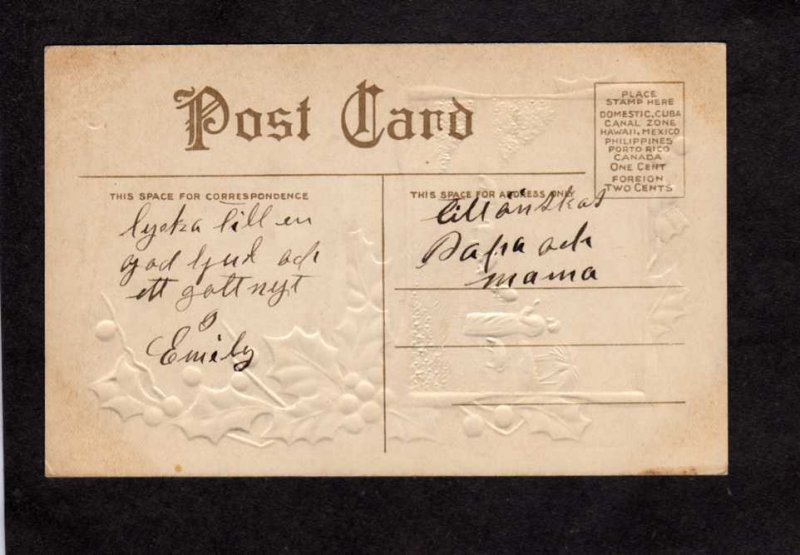 Post Card
PLACE
STAMP HERE
DOMESTIC, CUBA
CANAL ZONE
HAWAII, MEXICO
PHILIPPINES
PORTO RICO
CANADA
ONE CENT
FOREIGN
TWO CENTS
THIS SPACE FOR CORRESPONDENCE
lycka till en
god Ljul och
ett gott nyt
Emily
THIS SPACE FOR ADDRESS ONLY
till önskas
Papa och
mama